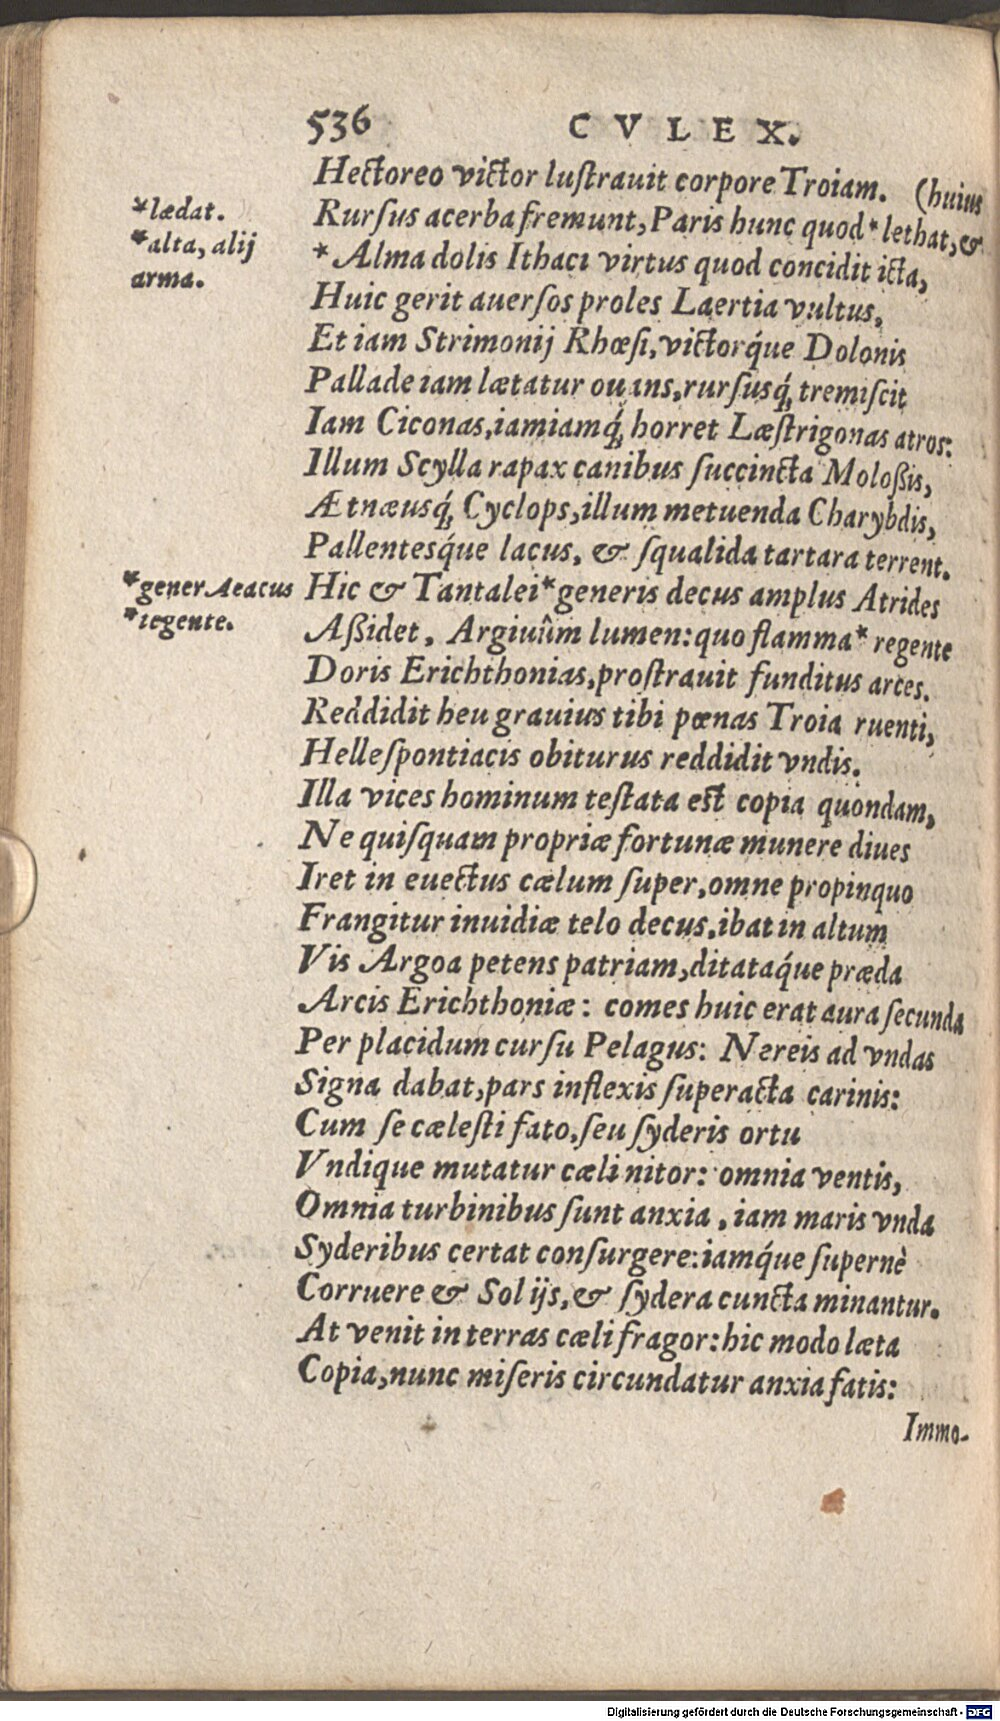 536 CVLEX.
Hectoreo victor lustrauit corpore Troiam. (huius
*lædat.
Rursus acerba fremunt, Paris hunc quod * lethat, &
*alta, alij
arma.
* Alma dolis Ithaci virtus quod concidit icta,
Huic gerit auersos proles Laertia vultus,
Et iam Strimonij Rhœsi, victorq́ue Dolonis
Pallade iam lætatur ouans, rursusq́; tremiscit
Iam Ciconas, iamiamq́; horret Læstrigonas atros:
Illum Scylla rapax canibus succincta Moloßis,
Ætnæusq́; Cyclops, illum metuenda Charybdis,
Pallentesq́ue lacus, & squalida tartara terrent.
*gener Aeacus
Hic & Tantalei * generis decus amplus Atrides
*iegente.
Aßidet, Argiuûm lumen: quo flamma * regente
Doris Erichthonias, prostrauit funditus arces.
Reddidit heu grauius tibi pœnas Troia ruenti,
Hellespontiacis obiturus reddidit vndis.
Illa vices hominum testata est copia quondam,
Ne quisquam propriæ fortunæ munere diues
Iret in euectus cælum super, omne propinquo
Frangitur inuidiæ telo decus, ibat in altum
Vis Argoa petens patriam, ditataq́ue præda
Arcis Erichthoniæ: comes huic erat aura secunda
Per placidum cursu Pelagus: Nereis ad vndas
Signa dabat, pars inflexis superacta carinis:
Cum se cælesti fato, seu syderis ortu
Vndique mutatur cæli nitor: omnia ventis,
Omnia turbinibus sunt anxia, iam maris vnda
Syderibus certat consurgere: iamq́ue supernè
Corruere & Sol ijs, & sydera cuncta minantur.
At venit in terras cæli fragor: hic modo læta
Copia, nunc miseris circundatur anxia fatis:
Immo-
Digitalisierung gefördert durch die Deutsche Forschungsgemeinschaft - DFG